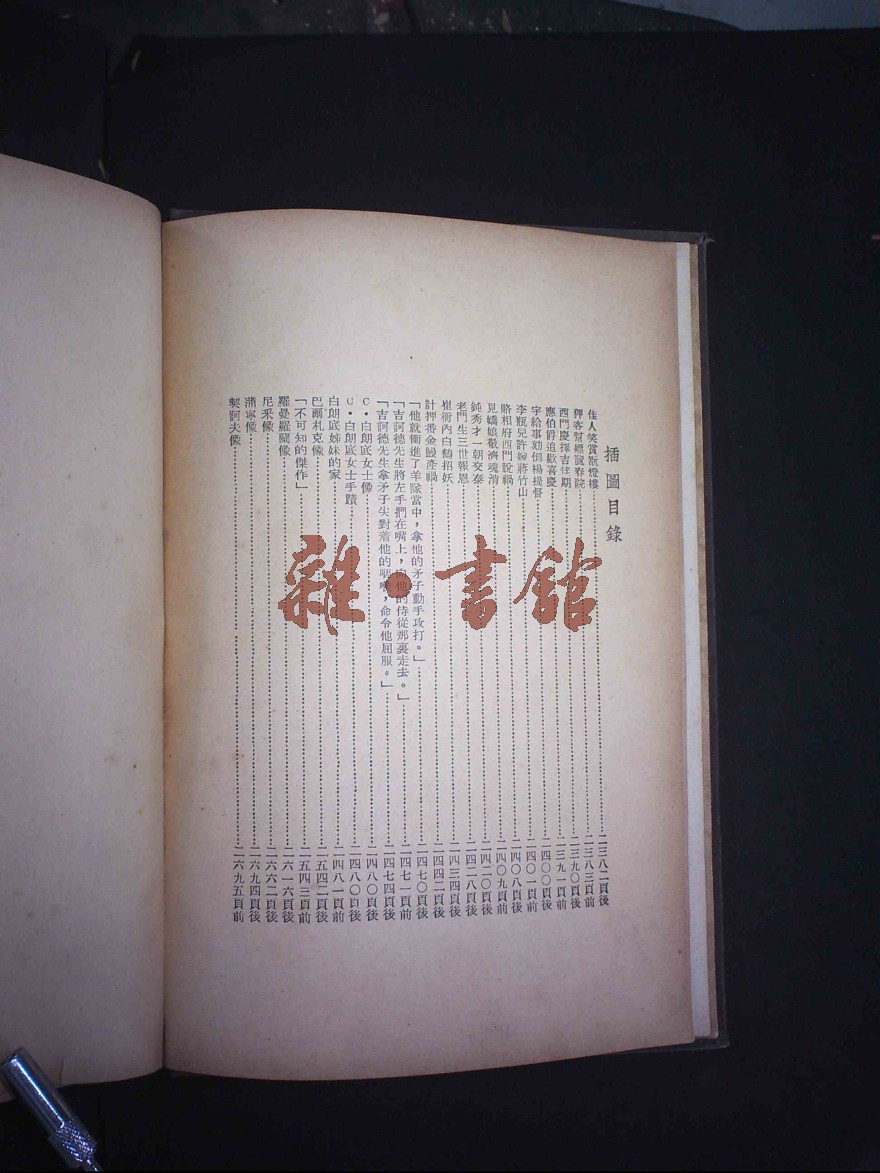 插圖目錄
佳人笑賞翫燈樓……一三八二頁後
狎客幫嫖麗春院……一三八三頁前
西門慶擇吉佳期……一三九〇頁後
應伯爵追歡喜慶……一三九一頁前
宇給事劾倒楊提督……一四〇〇頁後
李瓶兒許嫁蔣竹山……一四〇一頁前
賂相府西門脫禍……一四〇八頁後
見嬌娘敬濟魂消……一四〇九頁前
鈍秀才一朝交泰……一四二〇頁後
老門生三世報恩……一四二八頁後
崔衙內白鷂招妖……一四三四頁後
計押番金鰻產禍……一四四二頁後
「他就衝進了羊隊當中，拿他的矛子動手攻打。」……一四七〇頁後
「吉訶德先生將左手捫在嘴上，向他的侍從那裏走去。」……一四七一頁前
「吉訶德先生拿矛子尖對着他的咽喉，命令他屈服。」……一四七四頁後
C・白朗底女士像……一四八〇頁後
C・白朗底女士手蹟……一四八〇頁後
白朗底姊妹的家……一四八一頁前
巴爾札克像……一五四二頁後
「不可知的傑作」……一五四三頁前
羅曼羅蘭像……一六一六頁後
尼采像……一六六二頁後
蒲寧像……一六九四頁後
契訶夫像……一六九五頁前
雜・書館